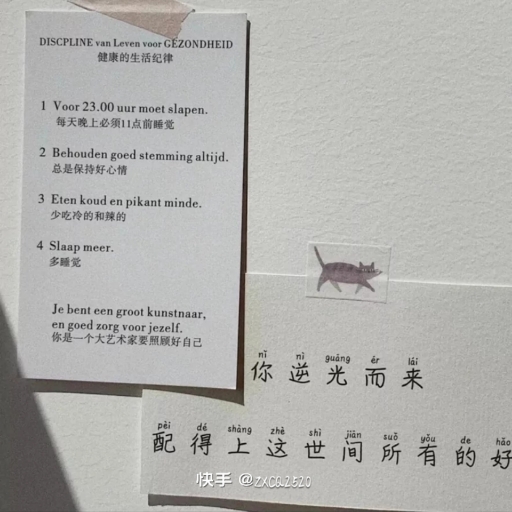 DISCPLINE van Leven voor GEZONDHEID
健康的生活纪律
1 Voor 23.00 uur moet slapen.
每天晚上必须11点前睡觉
2 Behouden goed stemming altijd.
总是保持好心情
3 Eten koud en pikant minde.
少吃冷的和辣的
4 Slaap meer.
多睡觉
Je bent een groot kunstnaar,
en goed zorg voor jezelf.
你是一个大艺术家要照顾好自己
nǐ nì guāng ér lái
你逆光而来
pèi dé shàng zhè shì jiān suǒ yǒu de hǎo
配得上这世间所有的好
快手 @ZXCQ2520